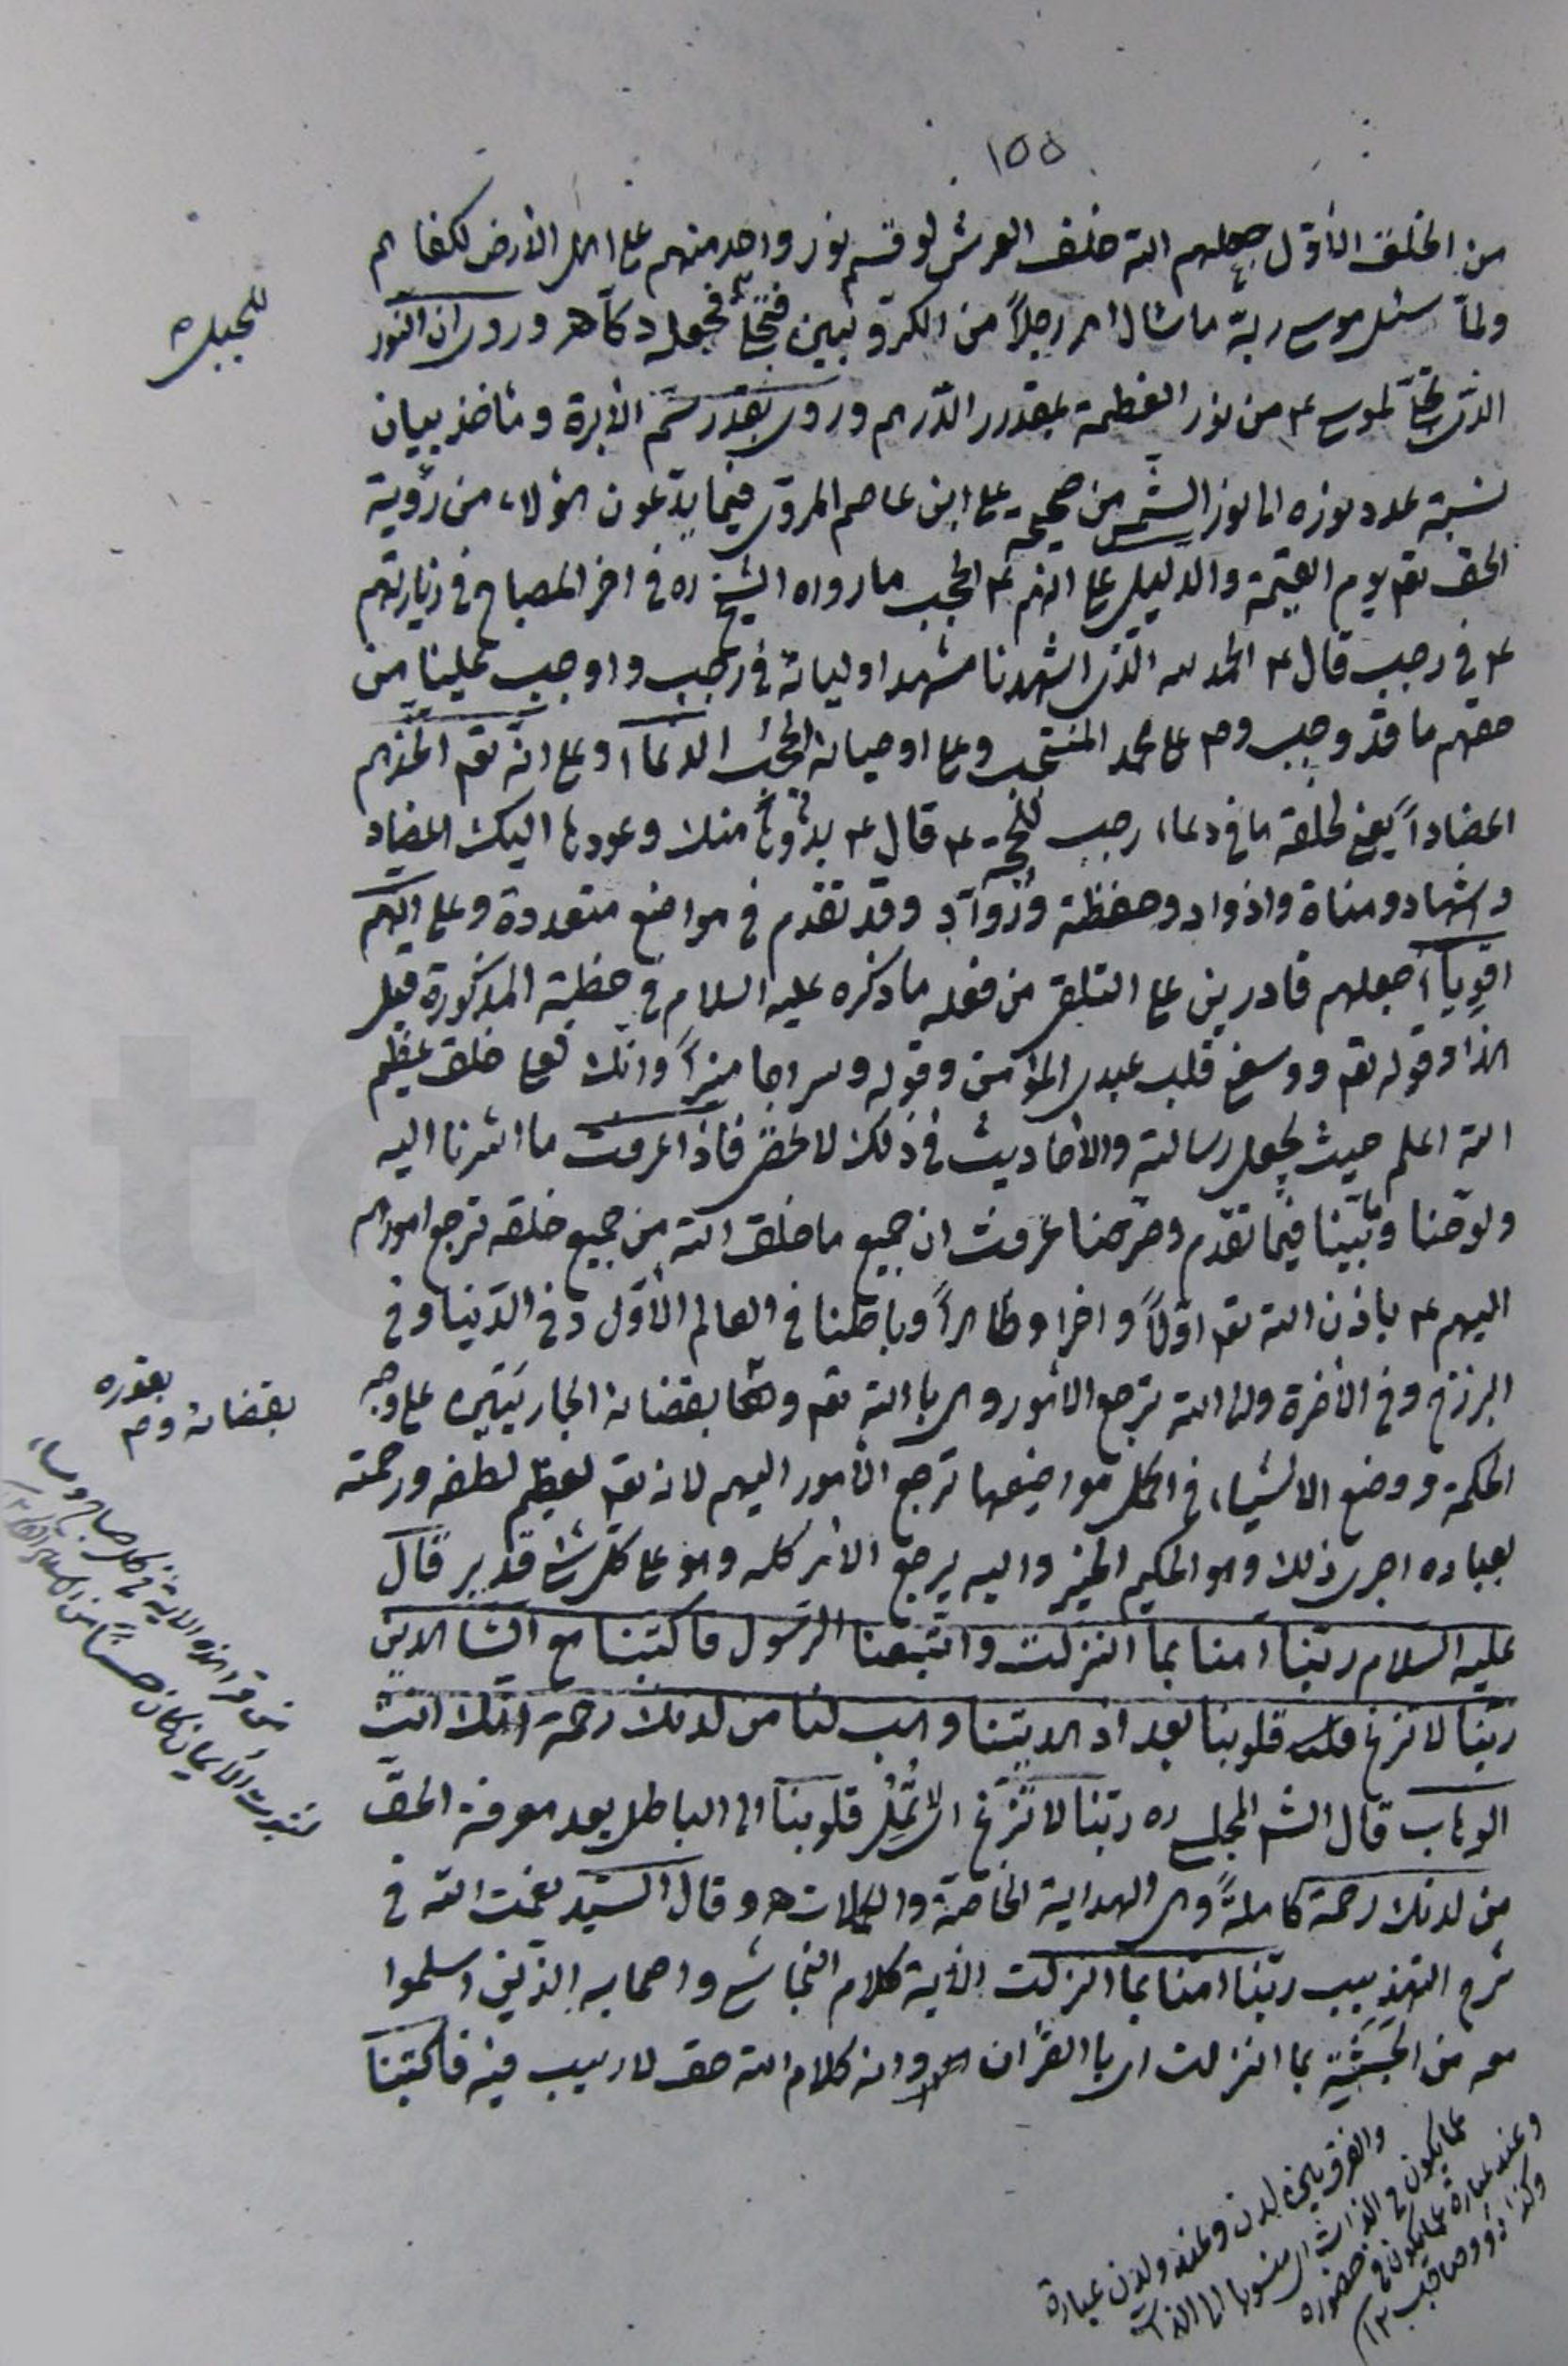 ١٥٥
من الخلق الأول جعلهم الله خلف العرش لو قسم نور واحد منهم على اهل الأرض لكفاهم
ولما سئل موسى ربه ما سئال امر رجلاً من الكروبيين فتجلى فجعله دكاً ه وروى ان النور
للجبل
الذى تجلى لموسى ع من نور العظمة بقدر الدرهم وروى بقدر سم الأبرة ومأخذ بيان
نسبة عدد نوره الى نور الشمس من صحيحة على ابن عاصم المروى فيما يدعون هؤلاء من رؤية
الحق تعم يوم القيمة والدليل على انهم ع الحجب ما رواه الشيخ ره فى اخر المصباح فى زيارتهم
ع فى رجب قال ع الحمد لله الذى اشهدنا مشهد اوليائه فى رجب واوجب علينا من
حقهم ما قد وجب وص على محمد المنتجب وعلى اوصيائه الحجب الدعآء وعلى انه تعم اتخذهم
اعضاداً يعنى لخلقه ما فى دعاء رجب للحجة ع قال ع بدؤها منك وعودها اليك اعضاد
واشهاد ومناة واذواد وحفظة وروآد وقد تقدم فى مواضع متعددة وعلى انهم
اقوياء جعلهم قادرين على التلقى من فعله ما ذكره عليه السلام فى خطبة المذكورة قبل
هذا وقوله تعم ووسعنى قلب عبدى المؤمن وقوله وسراجا منيراً وانك لعلى خلق عظيم
الله اعلم حيث يجعل رسالته والأحاديث فى ذلك لا تحصى فاذا عرفت ما اشرنا اليه
ولوحنا وبينا فيما تقدم وصرحنا عرفت ان جميع ما خلق الله من جميع خلقه ترجع امورهم
اليهم ع باذن الله تعم اولاً واخرا وظاهراً وباطنا فى العالم الأول وفى الدنيا وفى
البرزخ وفى الأخرة والى الله ترجع الأمور وهى بالله تعم بقضائه الجاريتين على وجه
بقضائه وص بقدره
الحكمة ووضع الاشياء فى اكمل مواضيعها ترجع الأمور اليهم لانه تعم لعظيم لطفه ورحمته
بعباده اجرى ذلك وهو الحكيم الخبير واليه يرجع الأمر كله وهو على كل شئ قدير قال
عليه السلام ربنا امنا بما انزلت واتبعنا الرسول فاكتبنا مع الشاهدين
ربنا لا تزغ قلوبنا بعد اذ هديتنا وهب لنا من لدنك رحمة انك انت
من قرء هذه الآية فى كل صباح ومساء
الوهاب قال الشه المجلسى ره ربنا لا تزغ اى لا تُمِل قلوبنا الى الباطل بعد معرفة الحق
من لدنك رحمة كاملةً وهى الهداية الخاصة والكمالات ه وقال السيد نعمت الله فى
شرح التهذيب ربنا امنا بما انزلت الأية كلام النجاشى واصحابه الذين اسلموا
معه من الحبشة بما انزلت اى بالقرآن وانه كلام الله حق لا ريب فيه فاكتبنا
والفرق بين لدن وعند ولدن عبارة
عما يكون فى الذات اى منسوبا الى الذات
وعند عبارة عما يكون فى حضوره
وكذا ذو وصاحب ١٢